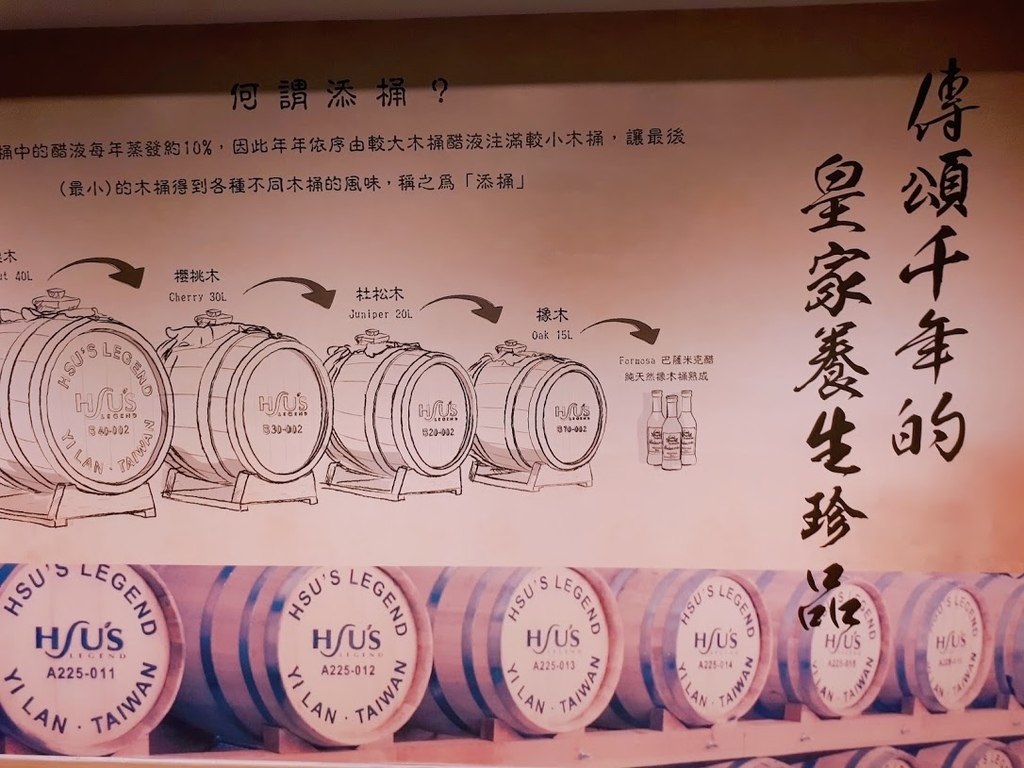 何謂添桶？
桶中的醋液每年蒸發約10%，因此年年依序由較大木桶醋液注滿較小木桶，讓最後
(最小)的木桶得到各種不同木桶的風味，稱之爲「添桶」
傳頌千年的
皇家養生珍品
木
40L
櫻桃木
Cherry 30L
杜松木
Juniper 20L
橡木
Oak 15L
Formosa 巴薩米克醋
純天然橡木桶熟成
HSU'S LEGEND
HSU'S
LEGEND
B40-002
YI LAN · TAIWAN
HSU'S
LEGEND
B30-002
HSU'S
LEGEND
B20-002
HSU'S
LEGEND
B70-002
HSU'S LEGEND
HSU'S
LEGEND
A225-011
YI LAN · TAIWAN
HSU'S LEGEND
HSU'S
LEGEND
A225-012
YI LAN · TAIWAN
HSU'S LEGEND
HSU'S
LEGEND
A225-013
YI LAN · TAIWAN
HSU'S LEGEND
HSU'S
LEGEND
A225-014
YI LAN · TAIWAN
HSU'S
A225-015
YI LAN · TAIWAN
HSU'S LEGEND
HSU'S
YI LAN · TAIWAN